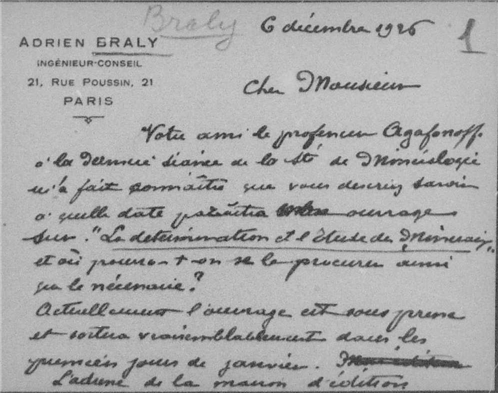 Braly
6 décembre 1926
1
ADRIEN BRALY
INGÉNIEUR-CONSEIL
21, RUE POUSSIN, 21
PARIS
Cher Monsieur
Votre ami le professeur Agafonoff
à la dernière séance de la Sté de Minéralogie
m'a fait connaître que vous désiriez savoir
à quelle date paraîtra ouvrage
sur : "La détermination et l'étude des Minéraux"
et où pourra-t-on se le procurer ainsi
que le nécessaire ?
Actuellement l'ouvrage est sous presse
et sortira vraisemblablement dans les
premiers jours de janvier.
L'adresse de la maison d'édition